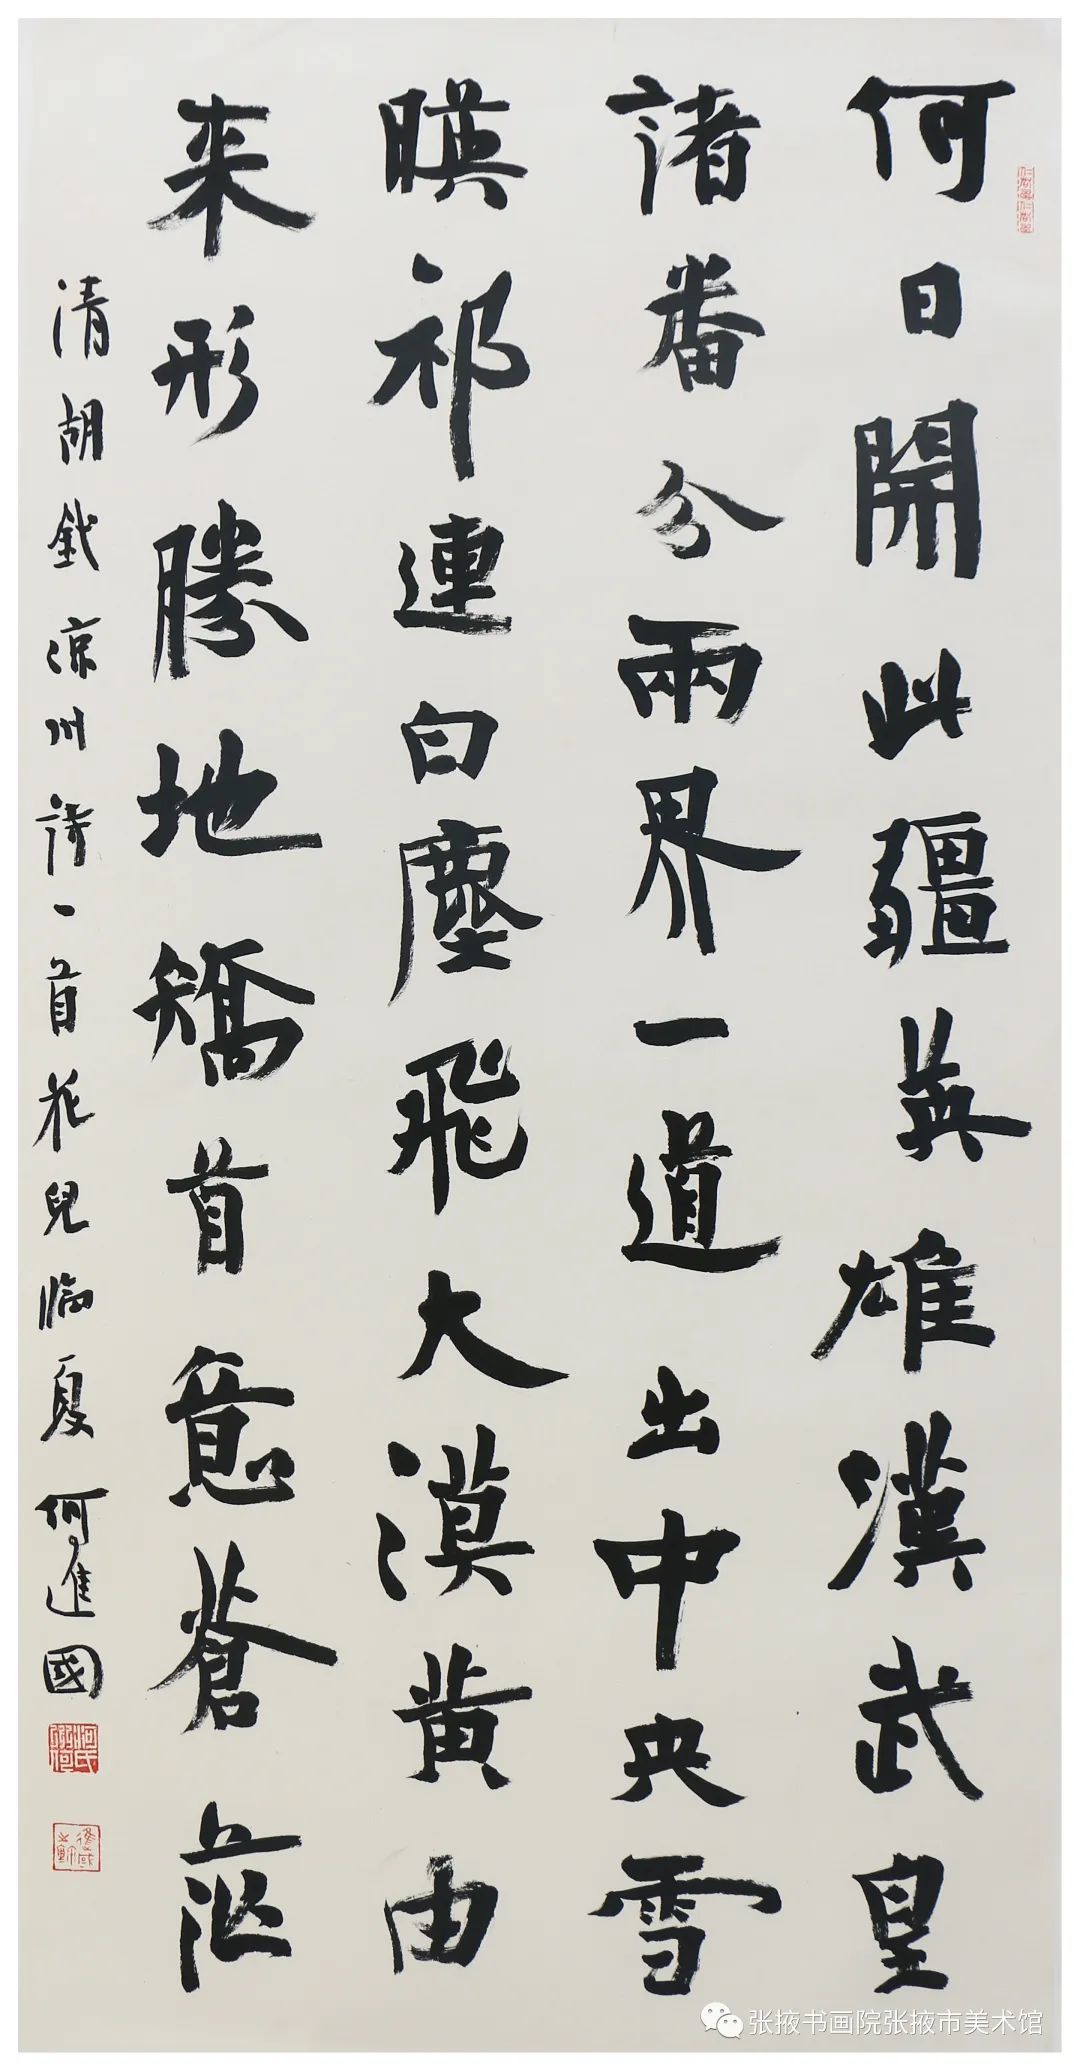 何日開此疆英雄漢武皇
諸番分兩界一道出中央雪
暎祁連白塵飛大漠黄由
来形勝地矯首意蒼茫
清胡釴涼州詩一首花兒臨夏何進國
张掖书画院张掖市美术馆